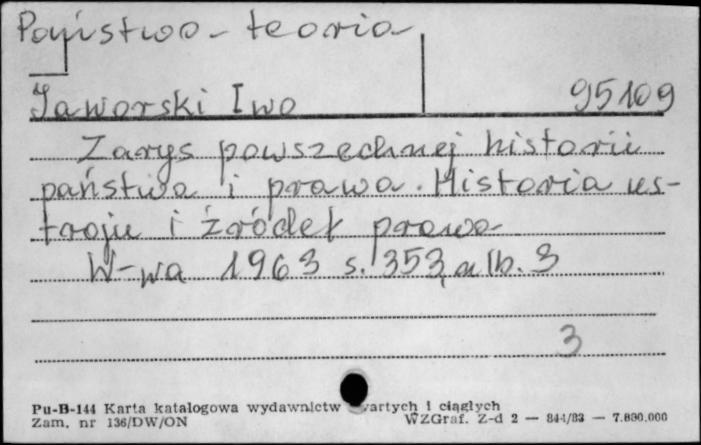 Państwo - teoria
Jaworski Iwo 95109
Zarys powszechnej historii
państwa i prawa. Historia us-
troju i źródeł prawa
W-wa 1963 s. 353, alb. 3
3
Pu-B-144 Karta katalogowa wydawnictw zwartych i ciągłych
Zam. nr 136/DW/ON WZGraf. Z-d 2 — 844/83 — 7.890.000